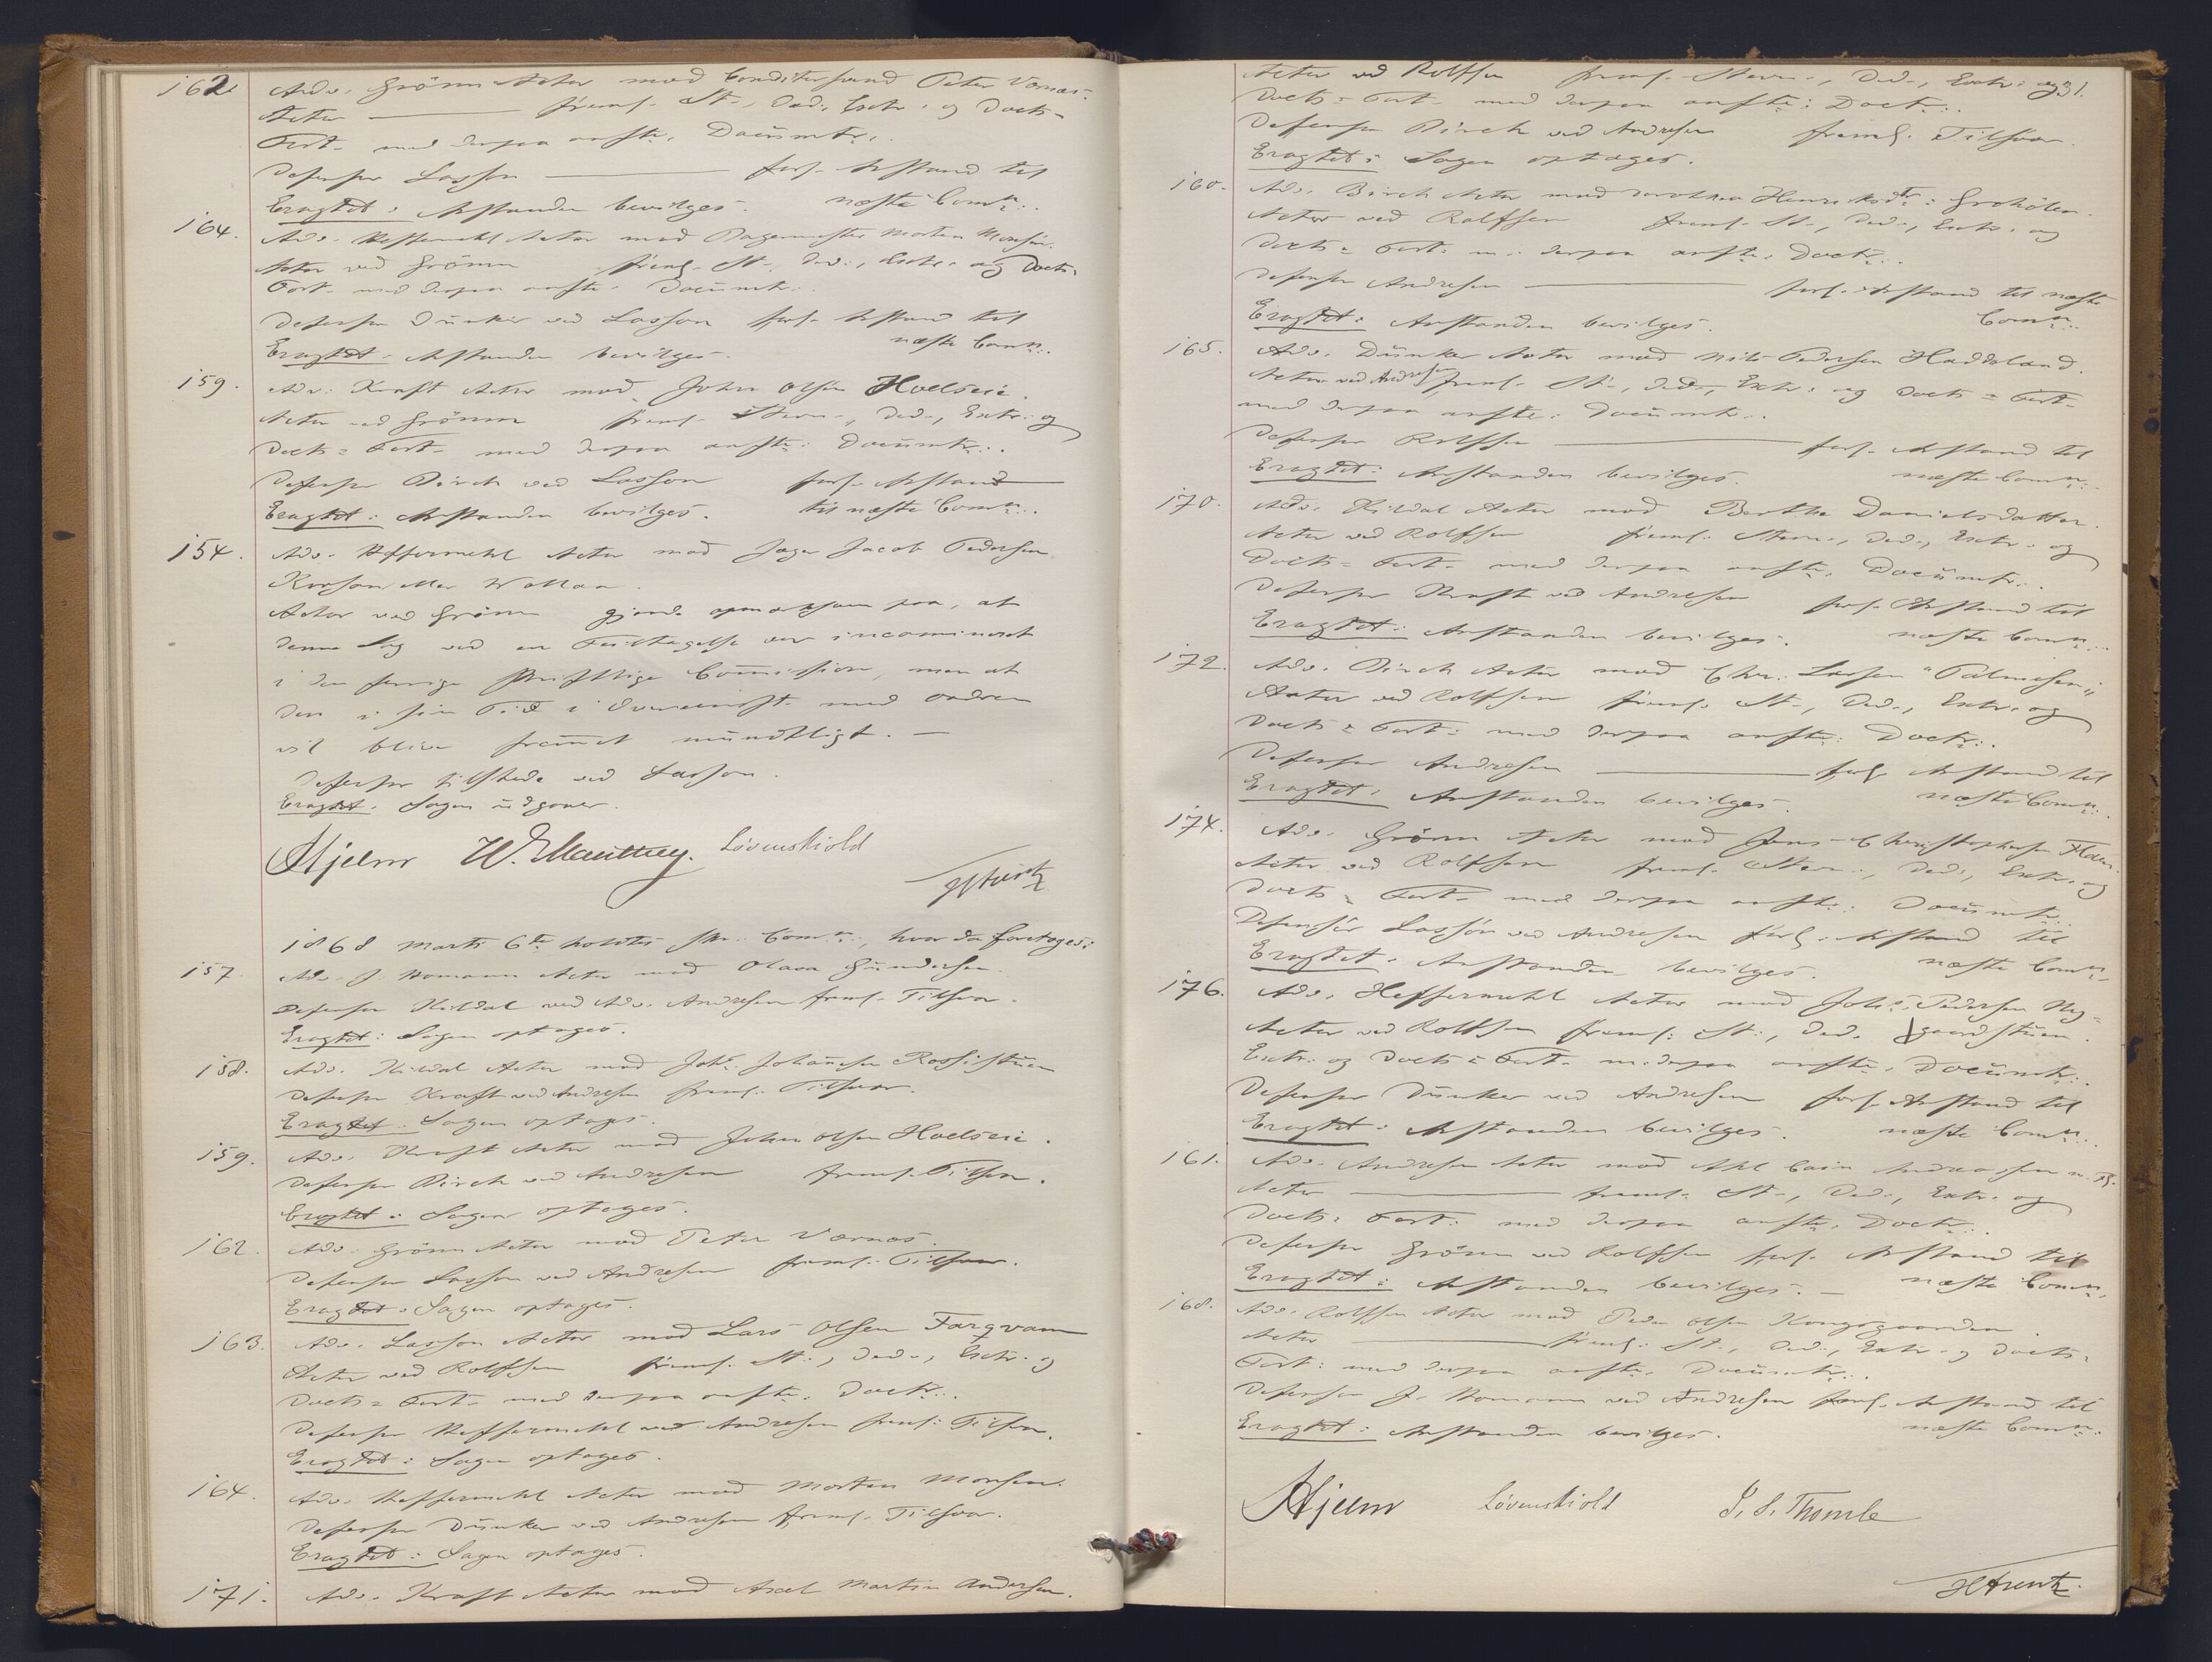 162. Adv. Grönn Actor mod Conditorsvend Peter Vornæs.
Actor — freml. St., Ded., Extr. og Docts=
Fort. med derpaa anførte Documtr.
Defensor Lasson — forl. Anstand til
Eragtet: Anstanden bevilges. næste Comn.
164. Adv. Heffermehl Actor mod Bagermester Morten Monsen.
Actor ved Grönn freml. St., Ded., Extr. og Docts=
Fort. med derpaa anførte Documtr.
Defensor Dünker ved Lasson forl. Anstand til
Eragtet: Anstanden bevilges. næste Comn.
159. Adv. Kraft Actor mod John Olsen Hoelseie.
Actor ved Grönn freml. Stevn., Ded., Extr. og
Docts= Fort. med derpaa anførte Documtr.
Defensor Birch ved Lasson forl. Anstand
Eragtet: Anstanden bevilges. til næste Comn.
154. Adv. Heffermehl Actor mod Jacob Pedersen
eller
Actor ved Grönn gjorde opmærksom paa, at
denne Sag ved en Feiltagelse var incamineret
i den forrige skriftlige Commission, men at
den i sin Tid i Overeenst. med Ordren
vil blive fremmet mündtligt. —
Defensor tilstede ved Lasson.
Eragtet: Sagen üdgaaer.
Hjelm Løvenskiold
1868 Marts 6te holdtes skr. Comn., hvor da foretoges:
157. Adv. J. Homann Actor mod Olava Gundersen.
Defensor Kildal ved Adv. Andresen freml. Tilsvar.
Eragtet: Sagen optages.
158. Adv. Kildal Actor mod Johs. Johannesen Rossistuen
Defensor Kraft ved Andresen freml. Tilsvar.
Eragtet: Sagen optages.
159. Adv. Kraft Actor mod John Olsen Hoelseie.
Defensor Birch ved Andresen freml. Tilsvar.
Eragtet: Sagen optages.
162. Adv. Grönn Actor mod Peter Vornæs.
Defensor Lasson ved Andresen freml. Tilsvar.
Eragtet: Sagen optages.
163. Adv. Lasson Actor mod Lars Olsen Fargvam
Actor ved Rolfsen freml. St., Ded., Extr. og
Docts= Fort. med derpaa anførte Doctr.
Defensor Heffermehl ved Andresen freml. Tilsvar.
Eragtet: Sagen optages.
164. Adv. Heffermehl Actor mod Morten Monsen.
Defensor Dünker ved Andresen freml. Tilsvar.
Eragtet: Sagen optages.
171. Adv. Kraft Actor mod Axel Martin Andersen.
31.
Actor ved Rolfsen freml. Stevn., Ded., Extr. og
Docts= Fort. med derpaa anførte Doctr.
Defensor Birch ved Andresen freml. Tilsvar.
Eragtet: Sagen optages.
160. Adv. Birch Actor mod Dorothea Henriksdtr. Groholen.
Actor ved Rolfsen freml. St., Ded., Extr. og
Docts= Fort. m. derpaa anførte Doctr.
Defensor Andresen — forl. Anstand til næste
Eragtet: Anstanden bevilges. Comn.
165. Adv. Dünker Actor mod Nils Pedersen Haddeland.
Actor ved Andresen freml. St., Ded., Extr. og Docts= Fort.
med derpaa anførte Documtr.
Defensor Rolfsen — forl. Anstand til
Eragtet: Anstanden bevilges. næste Comn.
170. Adv. Kildal Actor mod Berthe Danielsdatter.
Actor ved Rolfsen freml. Stevn., Ded., Extr. og
Docts= Fort. med derpaa anførte Documtr.
Defensor Kraft ved Andresen forl. Anstand til
Eragtet: Anstanden bevilges. næste Comn.
172. Adv. Birch Actor mod Chr. Larsen "Palmesen"
Actor ved Rolfsen freml. St., Ded., Extr. og
Docts= Fort. med derpaa anførte Doctr.
Defensor Andresen — forl. Anstand til
Eragtet: Anstanden bevilges. næste Comn.
174. Adv. Grönn Actor mod Jens Christophersen
Actor ved Rolfsen freml. Stevn., Ded., Extr. og
Docts= Fort. med derpaa anførte Documtr.
Defensor Lasson ved Andresen forl. Anstand til
Eragtet: Anstanden bevilges. næste Comn.
176. Adv. Heffermehl Actor mod Johs. Pedersen Ny=
Actor ved Rolfsen freml. St., Ded. gaardstuen.
Extr. og Docts= Fort. m. derpaa anførte Documtr.
Defensor Dünker ved Andresen forl. Anstand til
Eragtet: Anstanden bevilges. næste Comn.
161. Adv. Andresen Actor mod Andreassen m. Fl.
Actor — freml. St., Ded., Extr. og
Docts= Fort. med derpaa anførte Doctr.
Defensor Grönn ved Rolfsen forl. Anstand til
Eragtet: Anstanden bevilges. — næste Comn.
168. Adv. Rolfsen Actor mod Peder Olsen Kongsgaarden.
Actor — freml. St., Ded., Extr. og Docts=
Fort. med derpaa anførte Documtr.
Defensor J. Homann ved Andresen forl. Anstand til
Eragtet: Anstanden bevilges. næste Comn.
Hjelm Løvenskiold I. S. Thomle